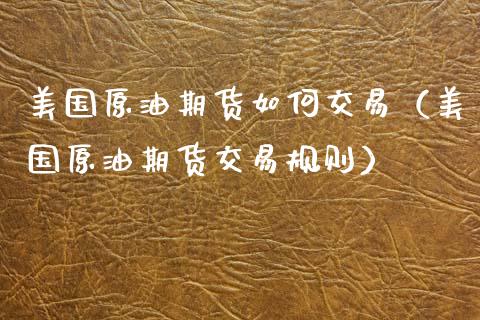 美国原油期货如何交易（美
国原油期货交易规则）